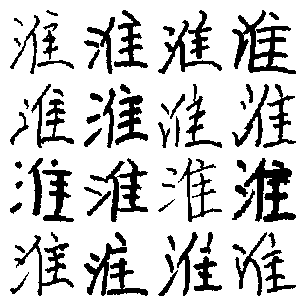 淮淮淮淮
淮淮淮淮
淮淮淮淮
淮淮淮淮